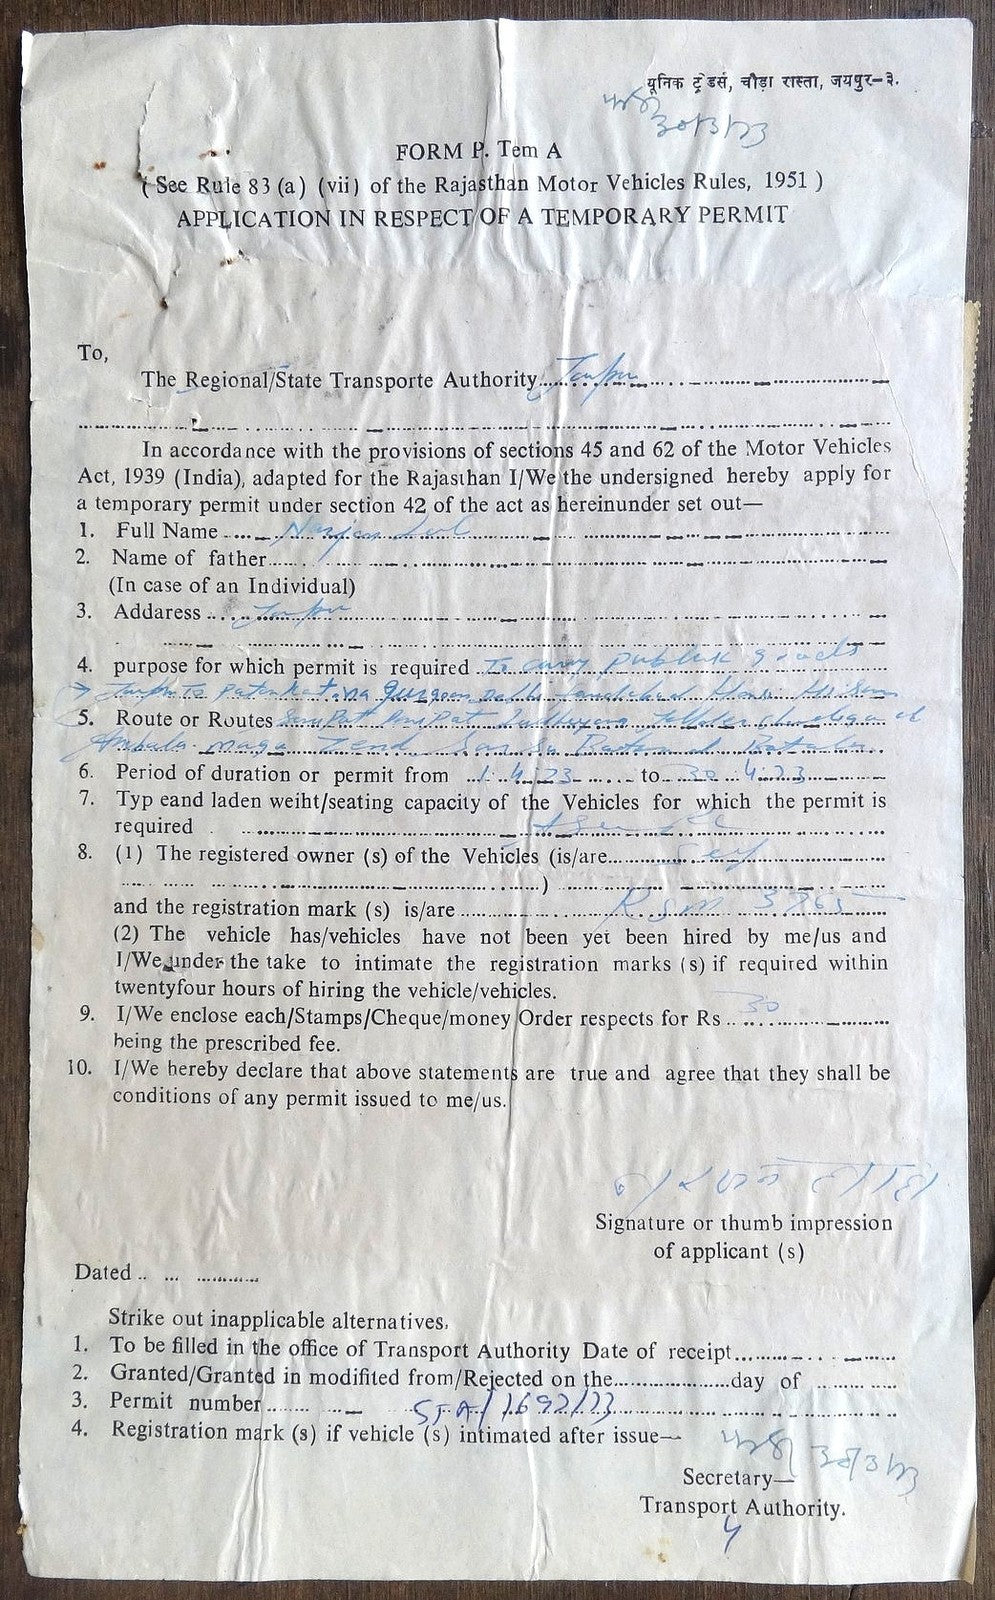 यूनिक ट्रेडर्स, चौड़ा रास्ता, जयपुर-३.
30/3/73
FORM P. Tem A
( See Rule 83 (a) (vii) of the Rajasthan Motor Vehicles Rules, 1951 )
APPLICATION IN RESPECT OF A TEMPORARY PERMIT
To,
The Regional/State Transporte Authority
In accordance with the provisions of sections 45 and 62 of the Motor Vehicles
Act, 1939 (India), adapted for the Rajasthan I/We the undersigned hereby apply for
a temporary permit under section 42 of the act as hereinunder set out—
1. Full Name
2. Name of father
(In case of an Individual)
3. Addaress
4. purpose for which permit is required To carry publik goods
5. Route or Routes
Ambala
6. Period of duration or permit from 1.4.73 to 30.4.73
7. Typ eand laden weiht/seating capacity of the Vehicles for which the permit is
required
8. (1) The registered owner (s) of the Vehicles (is/are
)
and the registration mark (s) is/are RSM 3765
(2) The vehicle has/vehicles have not been yet been hired by me/us and
I/We under the take to intimate the registration marks (s) if required within
twentyfour hours of hiring the vehicle/vehicles.
9. I/We enclose each/Stamps/Cheque/money Order respects for Rs 30
being the prescribed fee.
10. I/We hereby declare that above statements are true and agree that they shall be
conditions of any permit issued to me/us.
Signature or thumb impression
of applicant (s)
Dated
Strike out inapplicable alternatives.
1. To be filled in the office of Transport Authority Date of receipt
2. Granted/Granted in modifited from/Rejected on the day of
3. Permit number STA/1692/73
4. Registration mark (s) if vehicle (s) intimated after issue—
30/3/73
Secretary—
Transport Authority.